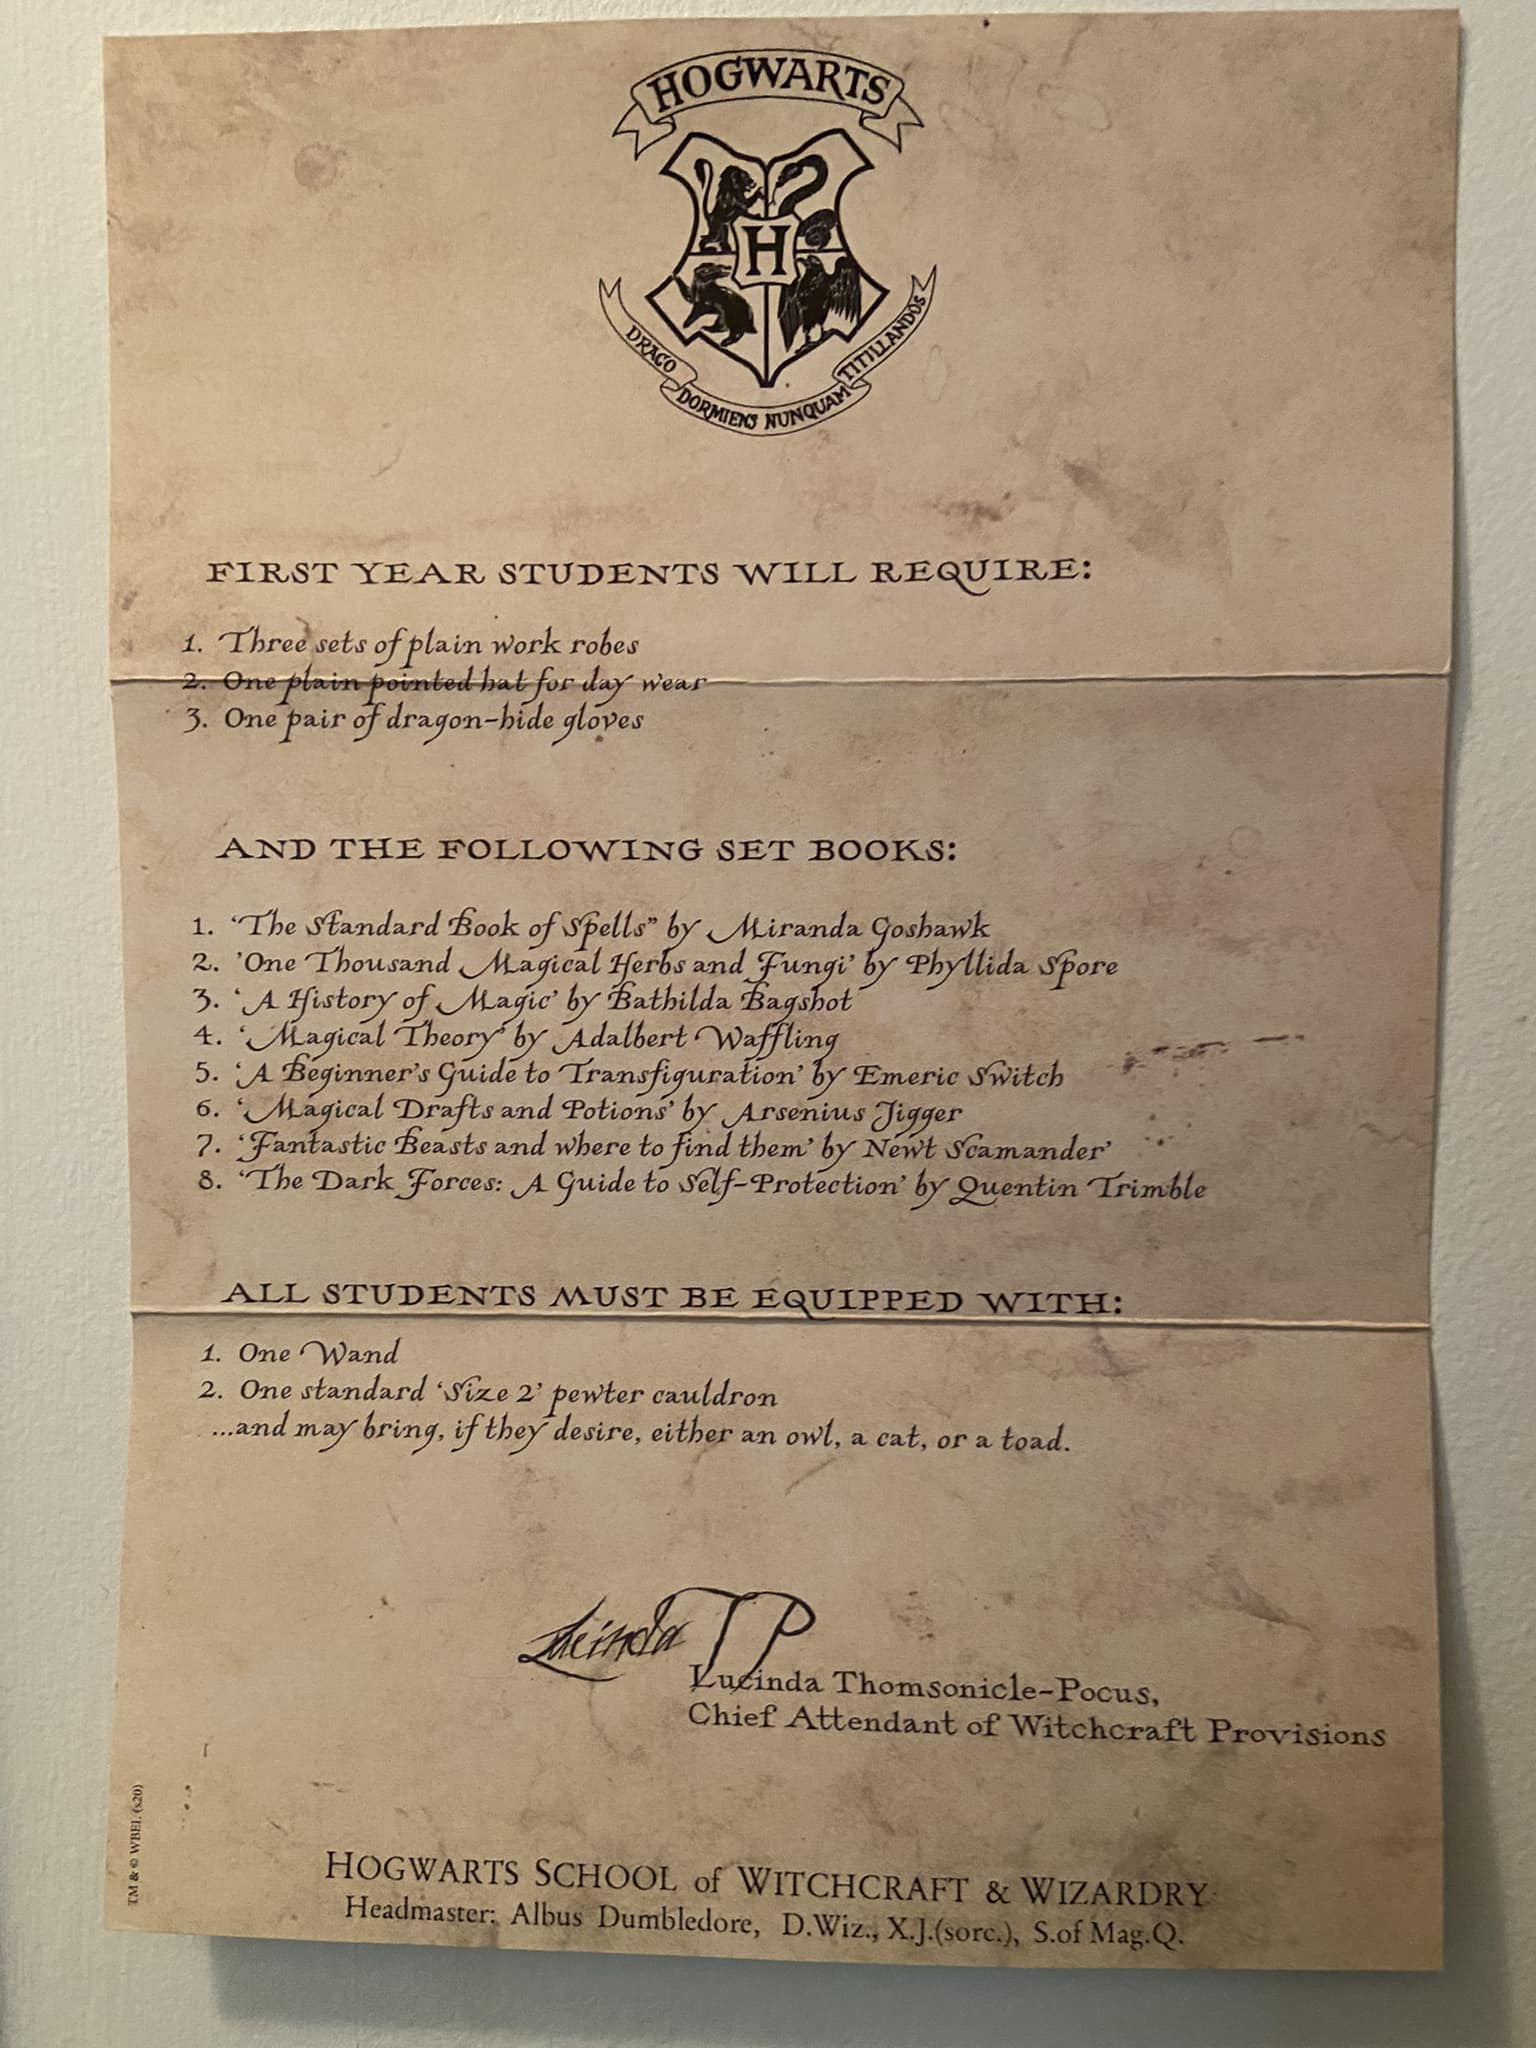 HOGWARTS
H
DRACO DORMIENS NUNQUAM TITILLANDUS
FIRST YEAR STUDENTS WILL REQUIRE:
1. Three sets of plain work robes
2. One plain pointed hat for day wear
3. One pair of dragon-hide gloves
AND THE FOLLOWING SET BOOKS:
1. ‘The Standard Book of Spells” by Miranda Goshawk
2. ’One Thousand Magical Herbs and Fungi’ by Phyllida Spore
3. ‘A History of Magic’ by Bathilda Bagshot
4. ‘Magical Theory’ by Adalbert Waffling
5. ‘A Beginner’s Guide to Transfiguration’ by Emeric Switch
6. ‘Magical Drafts and Potions’ by Arsenius Jigger
7. ‘Fantastic Beasts and where to find them’ by Newt Scamander’
8. ‘The Dark Forces: A Guide to Self-Protection’ by Quentin Trimble
ALL STUDENTS MUST BE EQUIPPED WITH:
1. One Wand
2. One standard ‘Size 2’ pewter cauldron
...and may bring, if they desire, either an owl, a cat, or a toad.
Lucinda T P
Lucinda Thomsonicle-Pocus,
Chief Attendant of Witchcraft Provisions
TM & © WBEI. (s20)
HOGWARTS SCHOOL of WITCHCRAFT & WIZARDRY
Headmaster: Albus Dumbledore, D.Wiz., X.J.(sorc.), S.of Mag.Q.